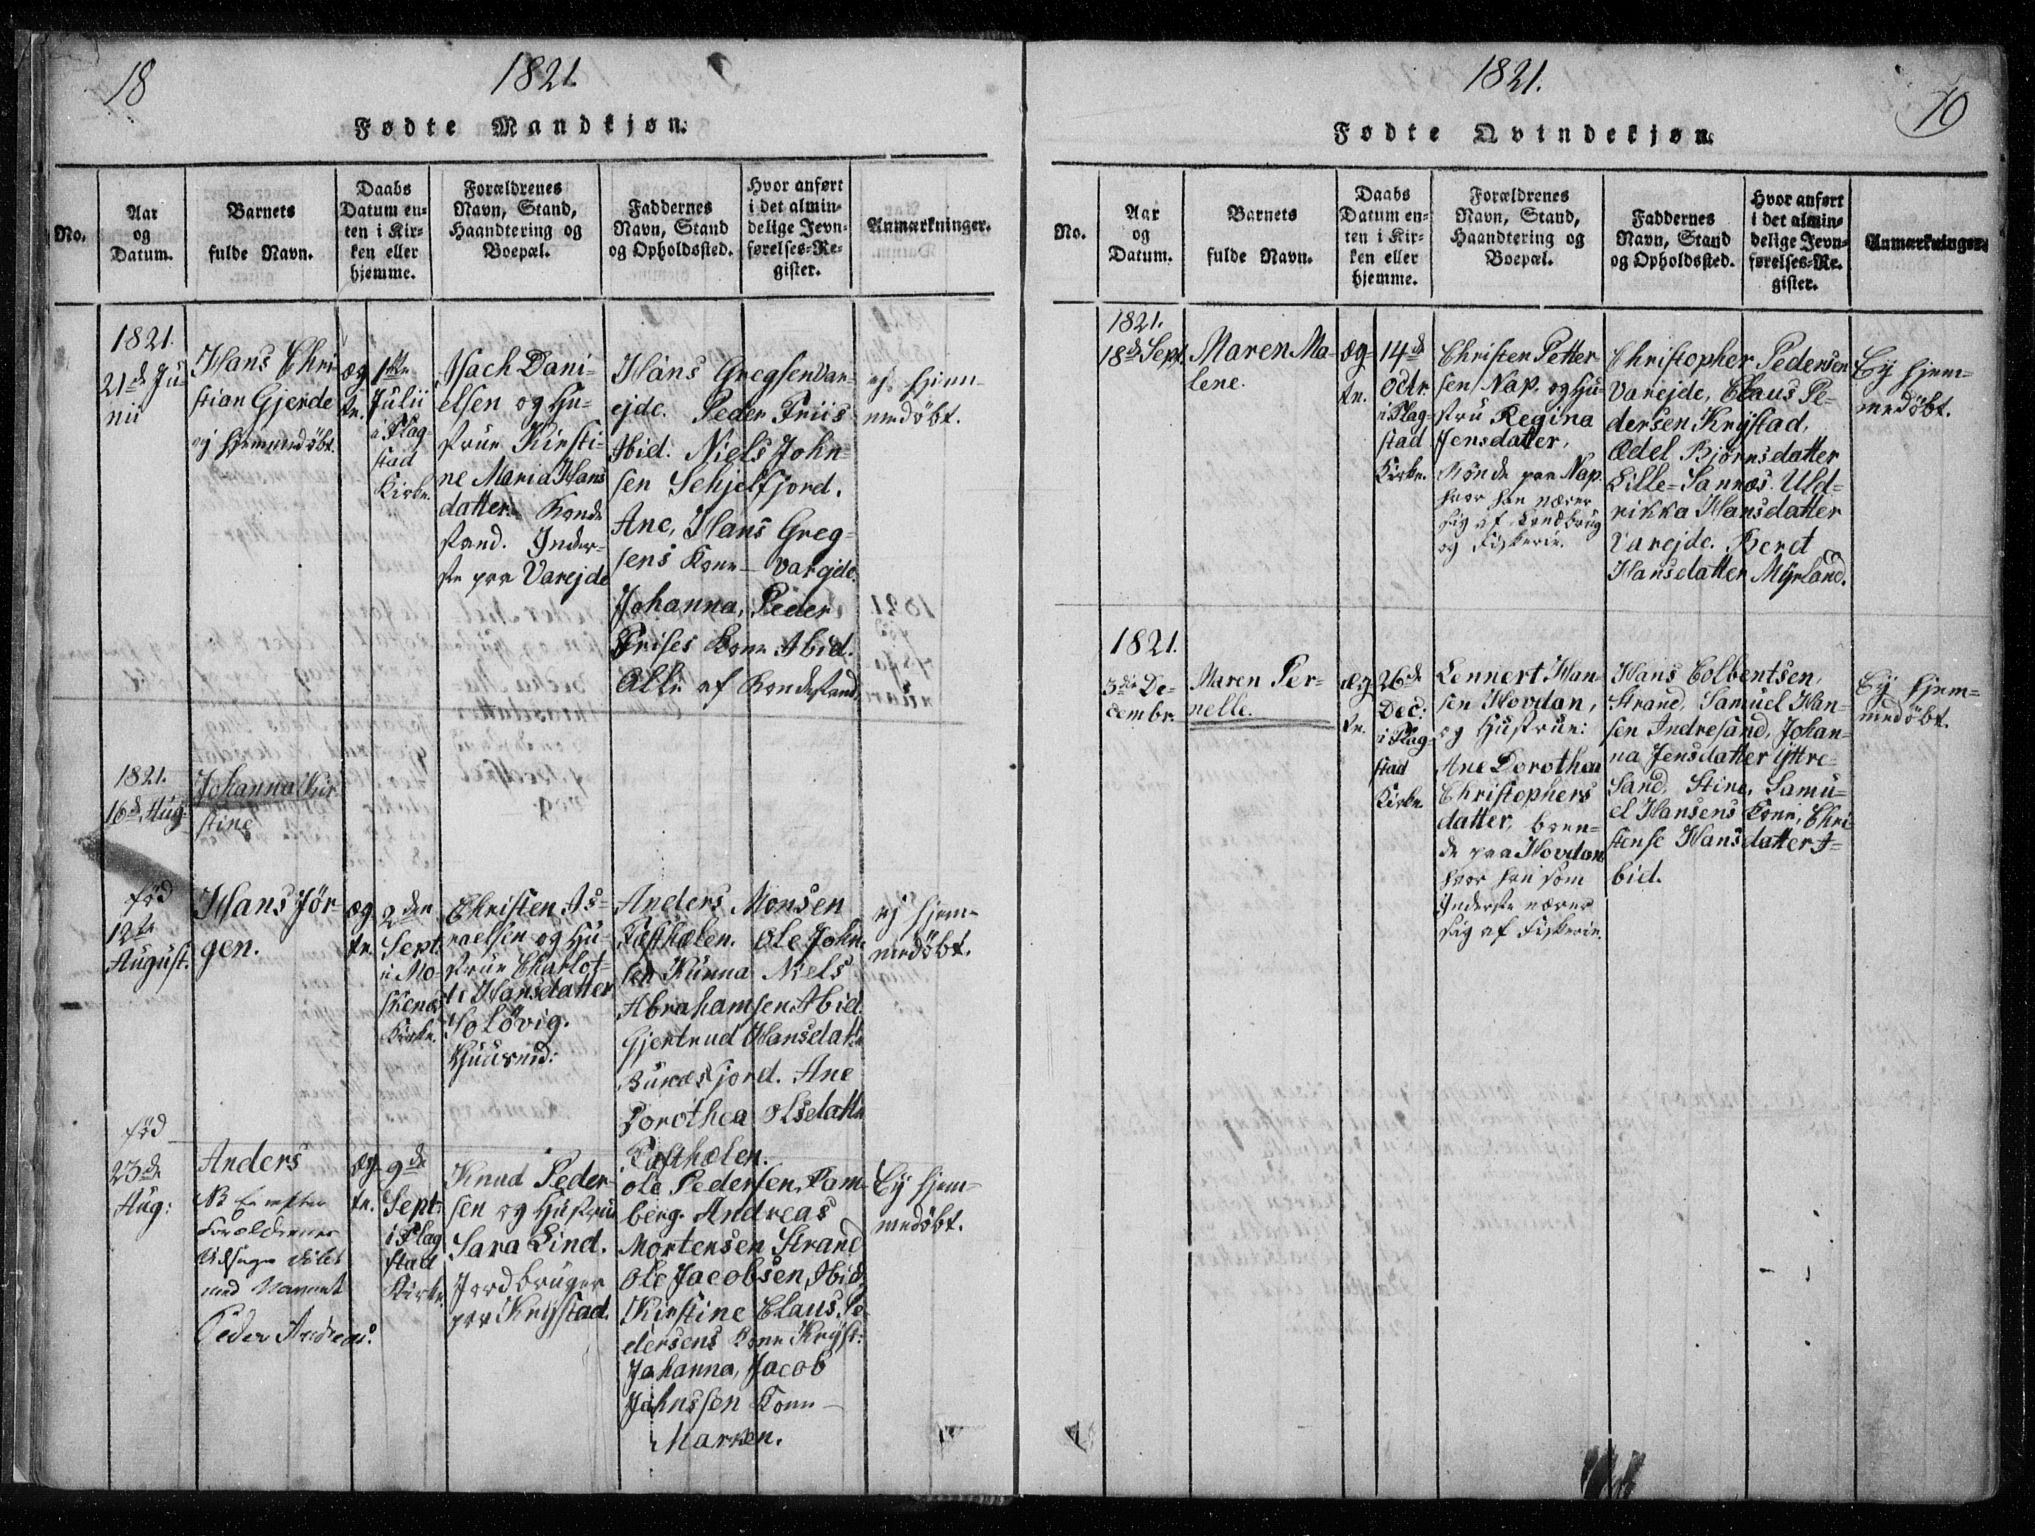 18
1821.
Fødte Mandkjøn.
No.
Aar
og
Datum.
Barnets
fulde Navn.
Daabs
Datum en-
ten i Kir-
ken eller
hjemme.
Forældrenes
Navn, Stand,
Haandtering og
Boepæl.
Faddernes
Navn, Stand
og Opholdssted.
Hvor anført
i det almin-
delige Jevn-
førelses-Re-
gister.
Anmærkninger.
1821.
21de Ju-
nii
Hans Chri
stian Gjerde
ej hjemmedøbt.
æg
te.
1ste
Julii
i Flag
stad
Kirke.
Isach Dani-
elsen og Hu-
strue Kirsti-
ne Maria Hans
datter. Bonde
stand. Inder-
ste paa Varejde
Hans Gregsen Var-
ejde. Peder Friis
Ibid. Niels John-
sen Schjelfjord.
Ane, Hans Greg-
sens Kone - Varejde.
Johanna, Peder
Frises Kone Ibid.
Alle af Bondestand.
ej hjem-
medøbt.
1821.
16de Aug:
Johanna Kir
stine
fød
12te
August.
Hans Jör-
gen.
æg
te.
2den
Sept.
i Mo-
skenæs
Kirke.
Christen As-
raelsen og Hu-
strue Charlot-
te Hansdatter
Solövig.
Huusmd:
Anders Monsen
Festhælen. Ole John-
sen Kunna Niels
Abrahamsen Ibid.
Gjertrud Hansdatt
Bunæsfjord. Ane
Dorothea Olsdatt
Festhælen.
ej hjem-
medøbt.
fød
23de
Aug:
Anders
NB Er efter
Forældrenes
Udsagn döbt
med Navnet
Peder Andreas.
æg
te.
9de
Sept:
i Flag
stad
Kirke.
Knud Peder-
sen og Hustru
Sara Lind.
Jordbruger
paa Krystad.
Ole Pedersen, Ram-
berg. Andreas
Mortensen Strand
Ole Jacobsen, Ibid.
Kirstine Claus Pe-
dersens Kone Kryst:
Johanna, Jacob
Johnssen Kone -
Marken.
Ej hjem-
medøbt.
1821.
10
Fødte Qvindekjøn.
No.
Aar
og
Datum.
Barnets
fulde Navn.
Daabs
Datum en-
ten i Kir-
ken eller
hjemme.
Forældrenes
Navn, Stand,
Haandtering og
Boepæl.
Faddernes
Navn, Stand
og Opholdssted.
Hvor anført
i det almin-
delige Jevn-
førelses-Re-
gister.
Anmærkninger.
1821.
18de Sept.
Maren Ma-
lene.
æg-
te.
14de
Octr.
i Flag-
stad
Kirke.
Christen Petter-
sen Nap. og Hu-
stru Regina
Jensdatter,
Bönde paa Nap.
hvor han nærer
sig af Landbrug
og Fiskerie.
Christopher Pedersen
Varejde, Claus Pe-
dersen Krystad,
Ædel Björnsdatter
Lille-Sannæs. Uld-
rikka Hansdatter
Varejde. Beret
Hansdatter Myrland.
Ej hjem-
medøbt.
1821.
3die De-
cembr.
Maren Per-
nelle.
æg
te.
26de
Dec:
i Flag-
stad
Kirke.
Lennert Han-
sen Hovdan,
og Hustrue:
Ane Dorothea
Christophers
datter, boen-
de paa Hovdan
hvor han som
Inderste nærer
sig af Fiskerie.
Hans Colbentsen,
Strand, Samuel Han-
sen Indresand, Johan-
na Jensdatter Yttre-
Sand, Stine, Samu-
el Hansens Kone, Chri
stense Hansdatter I-
bid.
Ej hjem-
medøbt.